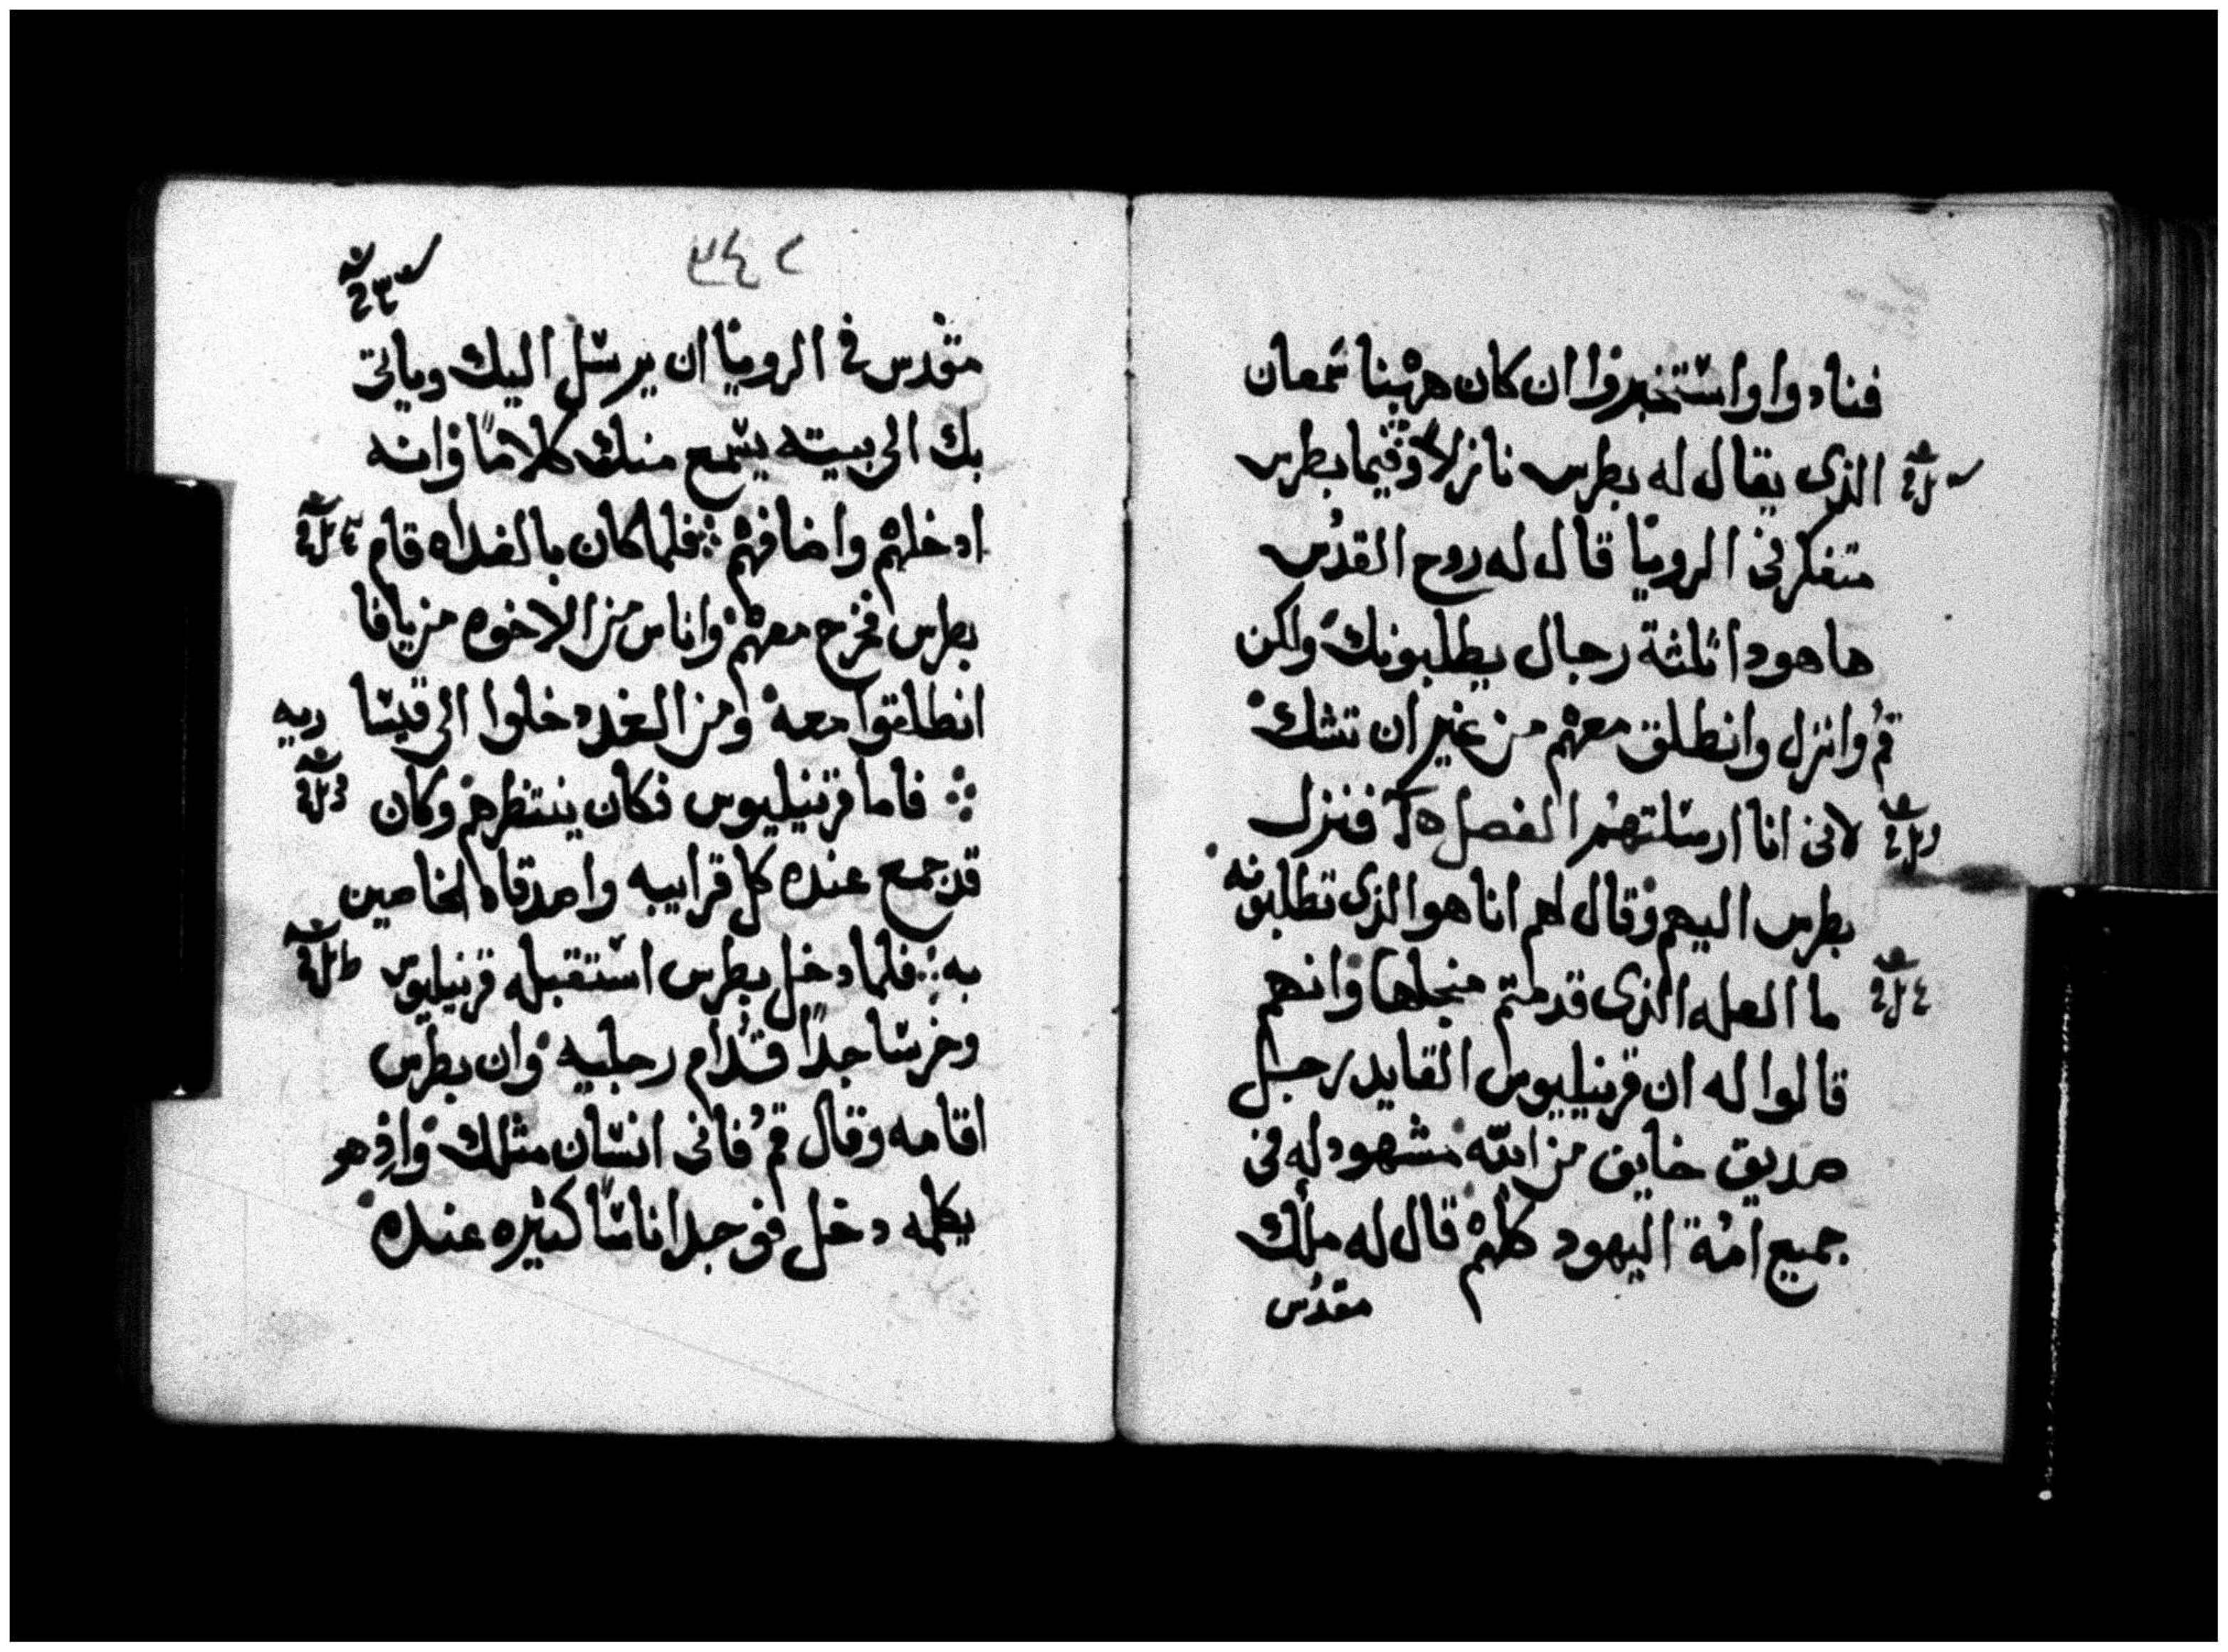 فنادوا واستخبروا ان كان هربنا شمعان
الذى يقال له بطرس نازلا وفيما بطرس
متفكر فى الرويا قال له روح القدس
ها هودا ثلثة رجال يطلبونك ولكن
قم وانزل وانطلق معهم من غير ان تشك
لانى انا ارسلتهم الفصل فنزل
بطرس اليهم وقال لهم انا هو الذى تطلبونه
ما العله الذى قدمتم منجلها وانهم
قالوا له ان قرنيليوس القايد رجل
صديق خايف من الله مشهود له فى
جميع امة اليهود كلهم قال له ملك
مقدس
٢٤٣
مقدس فى الرويا ان يرسل اليك وياتى
بك الى بيته يسمع منك كلاما وانه
ادخلهم واضافهم فلما كان بالغداه قام
بطرس فخرج معهم واناس من الاخوه من يافا
انطلقوا معه ومن الغد دخلوا الى قيسا
ريه
فاما قرنيليوس فكان ينتظرهم وكان
قد جمع عنده كل قرايبه واصدقاه الخاصين
به فلما دخل بطرس استقبله قرنيليوس
وخر ساجدا قدام رجليه وان بطرس
اقامه وقال قم فانى انسان مثلك واذ هو
يكلمه دخل فوجد اناسا كثيره عنده